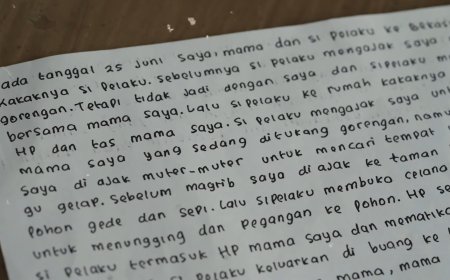 ada tanggal 25 Juni saya, mama dan si pelaku ke Bekas
Kakaknya si pelaku. Sebelumnya si pelaku mengajak saya
gorengan. Tetapi tidak jadi dengan saya dan si pelaku m
bersama mama saya. Lalu si pelaku ke rumah kakaknya
HP dan tas mama saya. Si pelaku mengajak saya un
mama saya yang sedang ditukang gorengan, namu
saya di ajak muter-muter untuk mencari tempat
gu gelap. Sebelum magrib saya di ajak ke taman
pohon gede dan sepi. Lalu si pelaku membuka celana
untuk menungging dan pegangan ke pohon. HP se
si pelaku termasuk HP mama saya dan matika
pelaku keluarkan di buang ke
mama, mama